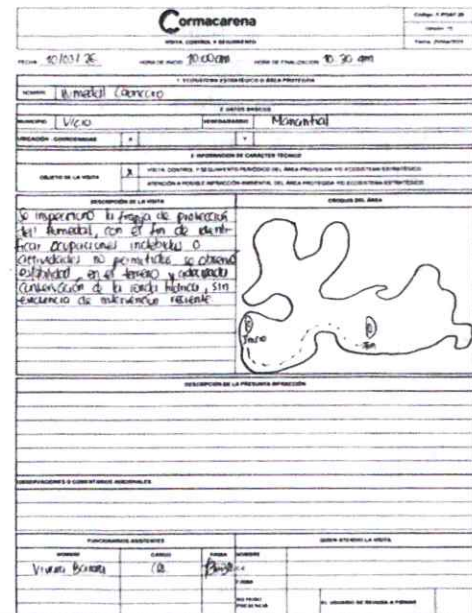 Cormacarena
VISITA, CONTROL Y SEGUIMIENTO
FECHA 10/03/26 HORA DE INICIO 10:00am HORA DE FINALIZACION 10:30 am
1 ECOSISTEMA ESTRATÉGICO O ÁREA PROTEGIDA
NOMBRE Humedal
2 DATOS BÁSICOS
MUNICIPIO V/cio Manantial
UBICACIÓN - COORDENADAS X Y
3 INFORMACIÓN DE CARÁCTER TÉCNICO
OBJETO DE LA VISITA
X VISITA, CONTROL Y SEGUIMIENTO PERIÓDICO DEL ÁREA PROTEGIDA Y/O ECOSISTEMA ESTRATÉGICO
ATENCIÓN A POSIBLE INFRACCIÓN AMBIENTAL DEL ÁREA PROTEGIDA Y/O ECOSISTEMA ESTRATÉGICO
DESCRIPCIÓN DE LA VISITA
Se inspeccionó la franja de protección
del humedal, con el fin de identi-
ficar ocupaciones indebidas o
actividades no permitidas, se observa
estabilidad en el terreno y adecuada
conservación de la ronda hídrica, sin
evidencia de intervención reciente
CROQUIS DEL ÁREA
Inicio
Fin
DESCRIPCIÓN DE LA PRESUNTA INFRACCIÓN
OBSERVACIONES O COMENTARIOS ADICIONALES
FUNCIONARIOS ASISTENTES QUIEN ATENDIÓ LA VISITA
NOMBRE CARGO FIRMA NOMBRE
FIRMA
NO HUBO PRESENCIA EL USUARIO SE REHUSA A FIRMAR